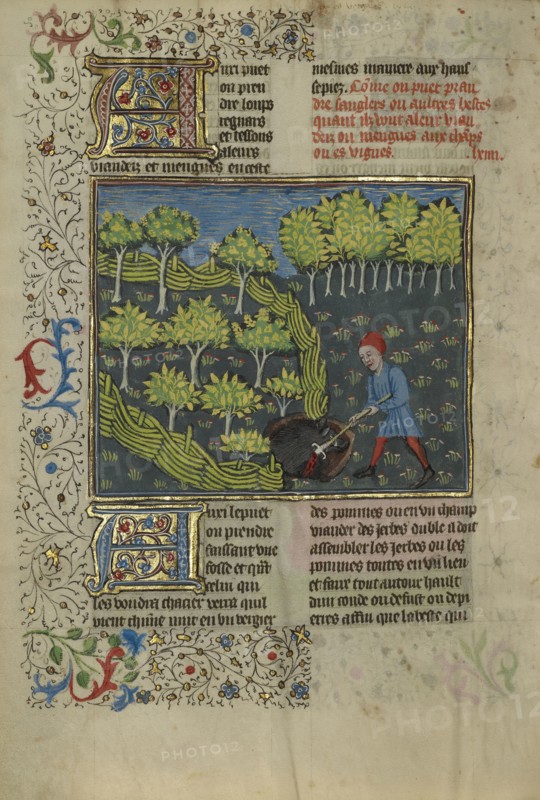 Auxi puet
on pren
dre loups
regnars
et tessons
aleurs
viandez et mengues en ceste
mesmes maniere aux haus
sepiez. Cõme on puet pran
dre sanglers ou aultres bestes
quant ilz vont aleur vian
dez ou mengues aux chãps
ou es vignes. lxxiii.
Auxi le puet
on prendre
faisant une
fosse et
celui qui
les voudra chacier verra quil
vient nuit en un vergier
des pommes ou en un champ
viander des jerbes ou ble il doit
assembler les jerbes ou les
pommes toutes en un lieu
et faire tout autour hault
dun conde ou de fust ou de pi
erres affin que la beste qui
PHOTO12